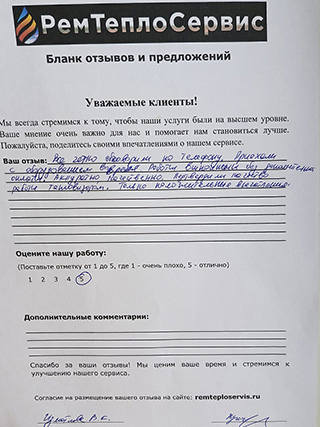 РемТеплоСервис
Бланк отзывов и предложений
Уважаемые клиенты!
Мы всегда стремимся к тому, чтобы наши услуги были на высшем уровне.
Ваше мнение очень важно для нас и помогает нам становиться лучше.
Пожалуйста, поделитесь своими впечатлениями о нашем сервисе.
Ваш отзыв: Все четко обговорили по телефону. Приехали
с оборудованием вовремя. Работы выполнили без
оплаты. Аккуратно. Качественно. Подтвердили качество
работ тепловизором. Только положительные впечатления.
Оцените нашу работу:
(Поставьте отметку от 1 до 5, где 1 - очень плохо, 5 - отлично)
1 2 3 4 5
Дополнительные комментарии:
Спасибо за ваши отзывы! Мы ценим ваше время и стремимся к
улучшению нашего сервиса.
Согласие на размещение вашего отзыва на сайте: remteploservis.ru